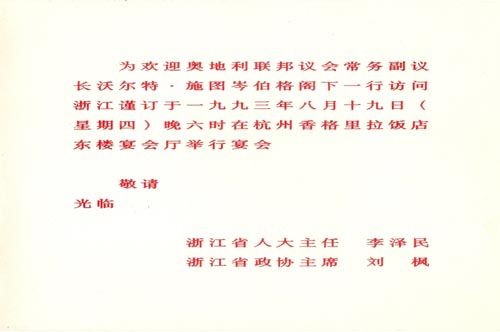 为欢迎奥地利联邦议会常务副议
长沃尔特·施图岑伯格阁下一行访问
浙江谨订于一九九三年八月十九日（
星期四）晚六时在杭州香格里拉饭店
东楼宴会厅举行宴会
敬请
光临
浙江省人大主任 李泽民
浙江省政协主席 刘 枫